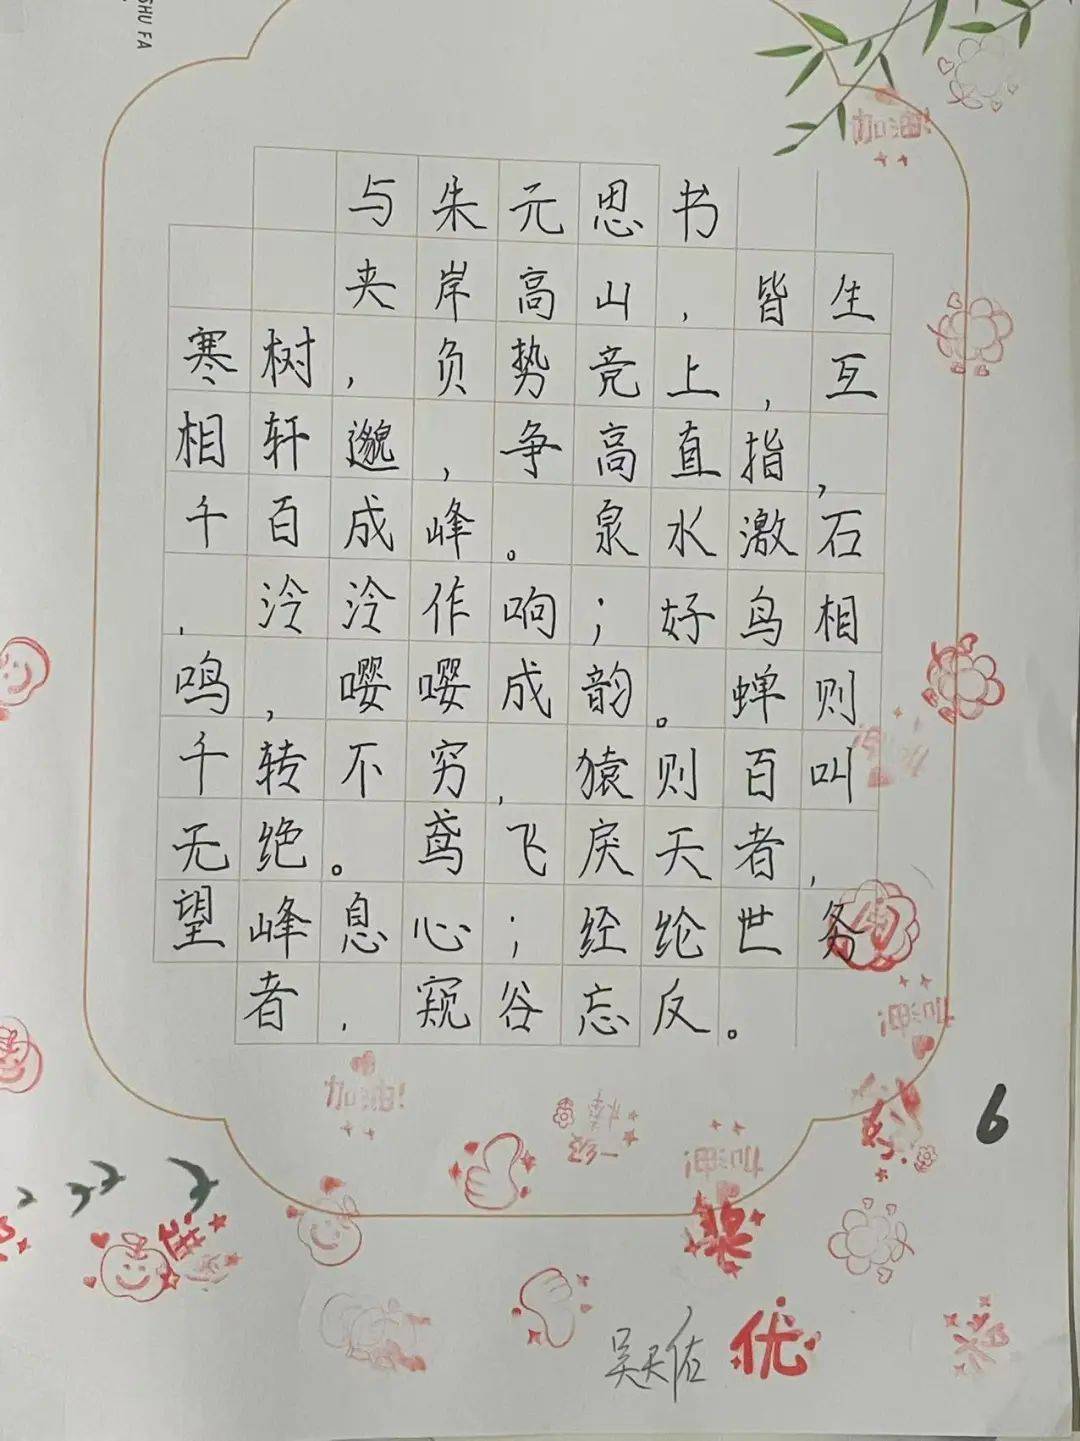 SHU FA
加油!
与朱元恩书
夹岸高山，皆生
寒树，负势竞上，互
相轩邈，争高直指，
千百成峰。泉水激石
，泠泠作响；好鸟相
鸣，嘤嘤成韵。蝉则
千转不穷，猿则百叫
无绝。鸢飞戾天者，
望峰息心；经纶世务
者，窥谷忘反。
加油!
加油!
一级棒
加油!
6
优